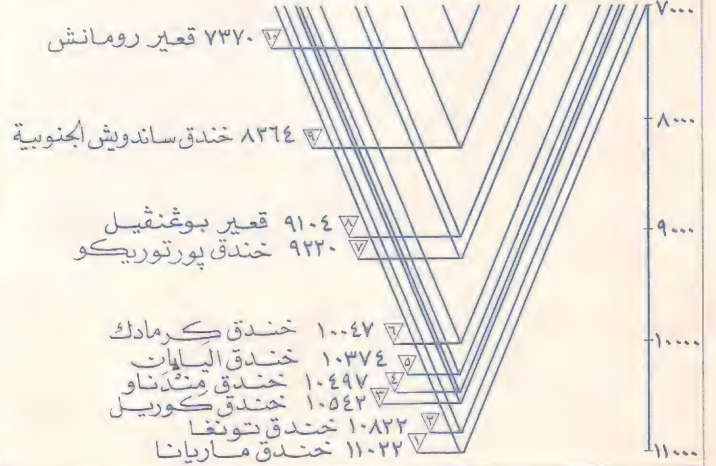 ٧٠٠٠
١٠ ٧٣٧٠ قعير رومانش
٨٠٠٠
٩ ٨٣٦٤ خندق ساندويش الجنوبية
٩٠٠٠
٨ ٩١٠٤ قعير بوغنڤيل
٧ ٩٢٢٠ خندق پورتوريكو
١٠٠٠٠
٦ ١٠٠٤٧ خندق كرمادك
٥ ١٠٣٧٤ خندق اليابان
٤ ١٠٤٩٧ خندق مِنْدَناو
٣ ١٠٥٤٢ خندق كوريل
٢ ١٠٨٢٢ خندق تونغا
١ ١١٠٢٢ خندق ماريانا
١١٠٠٠